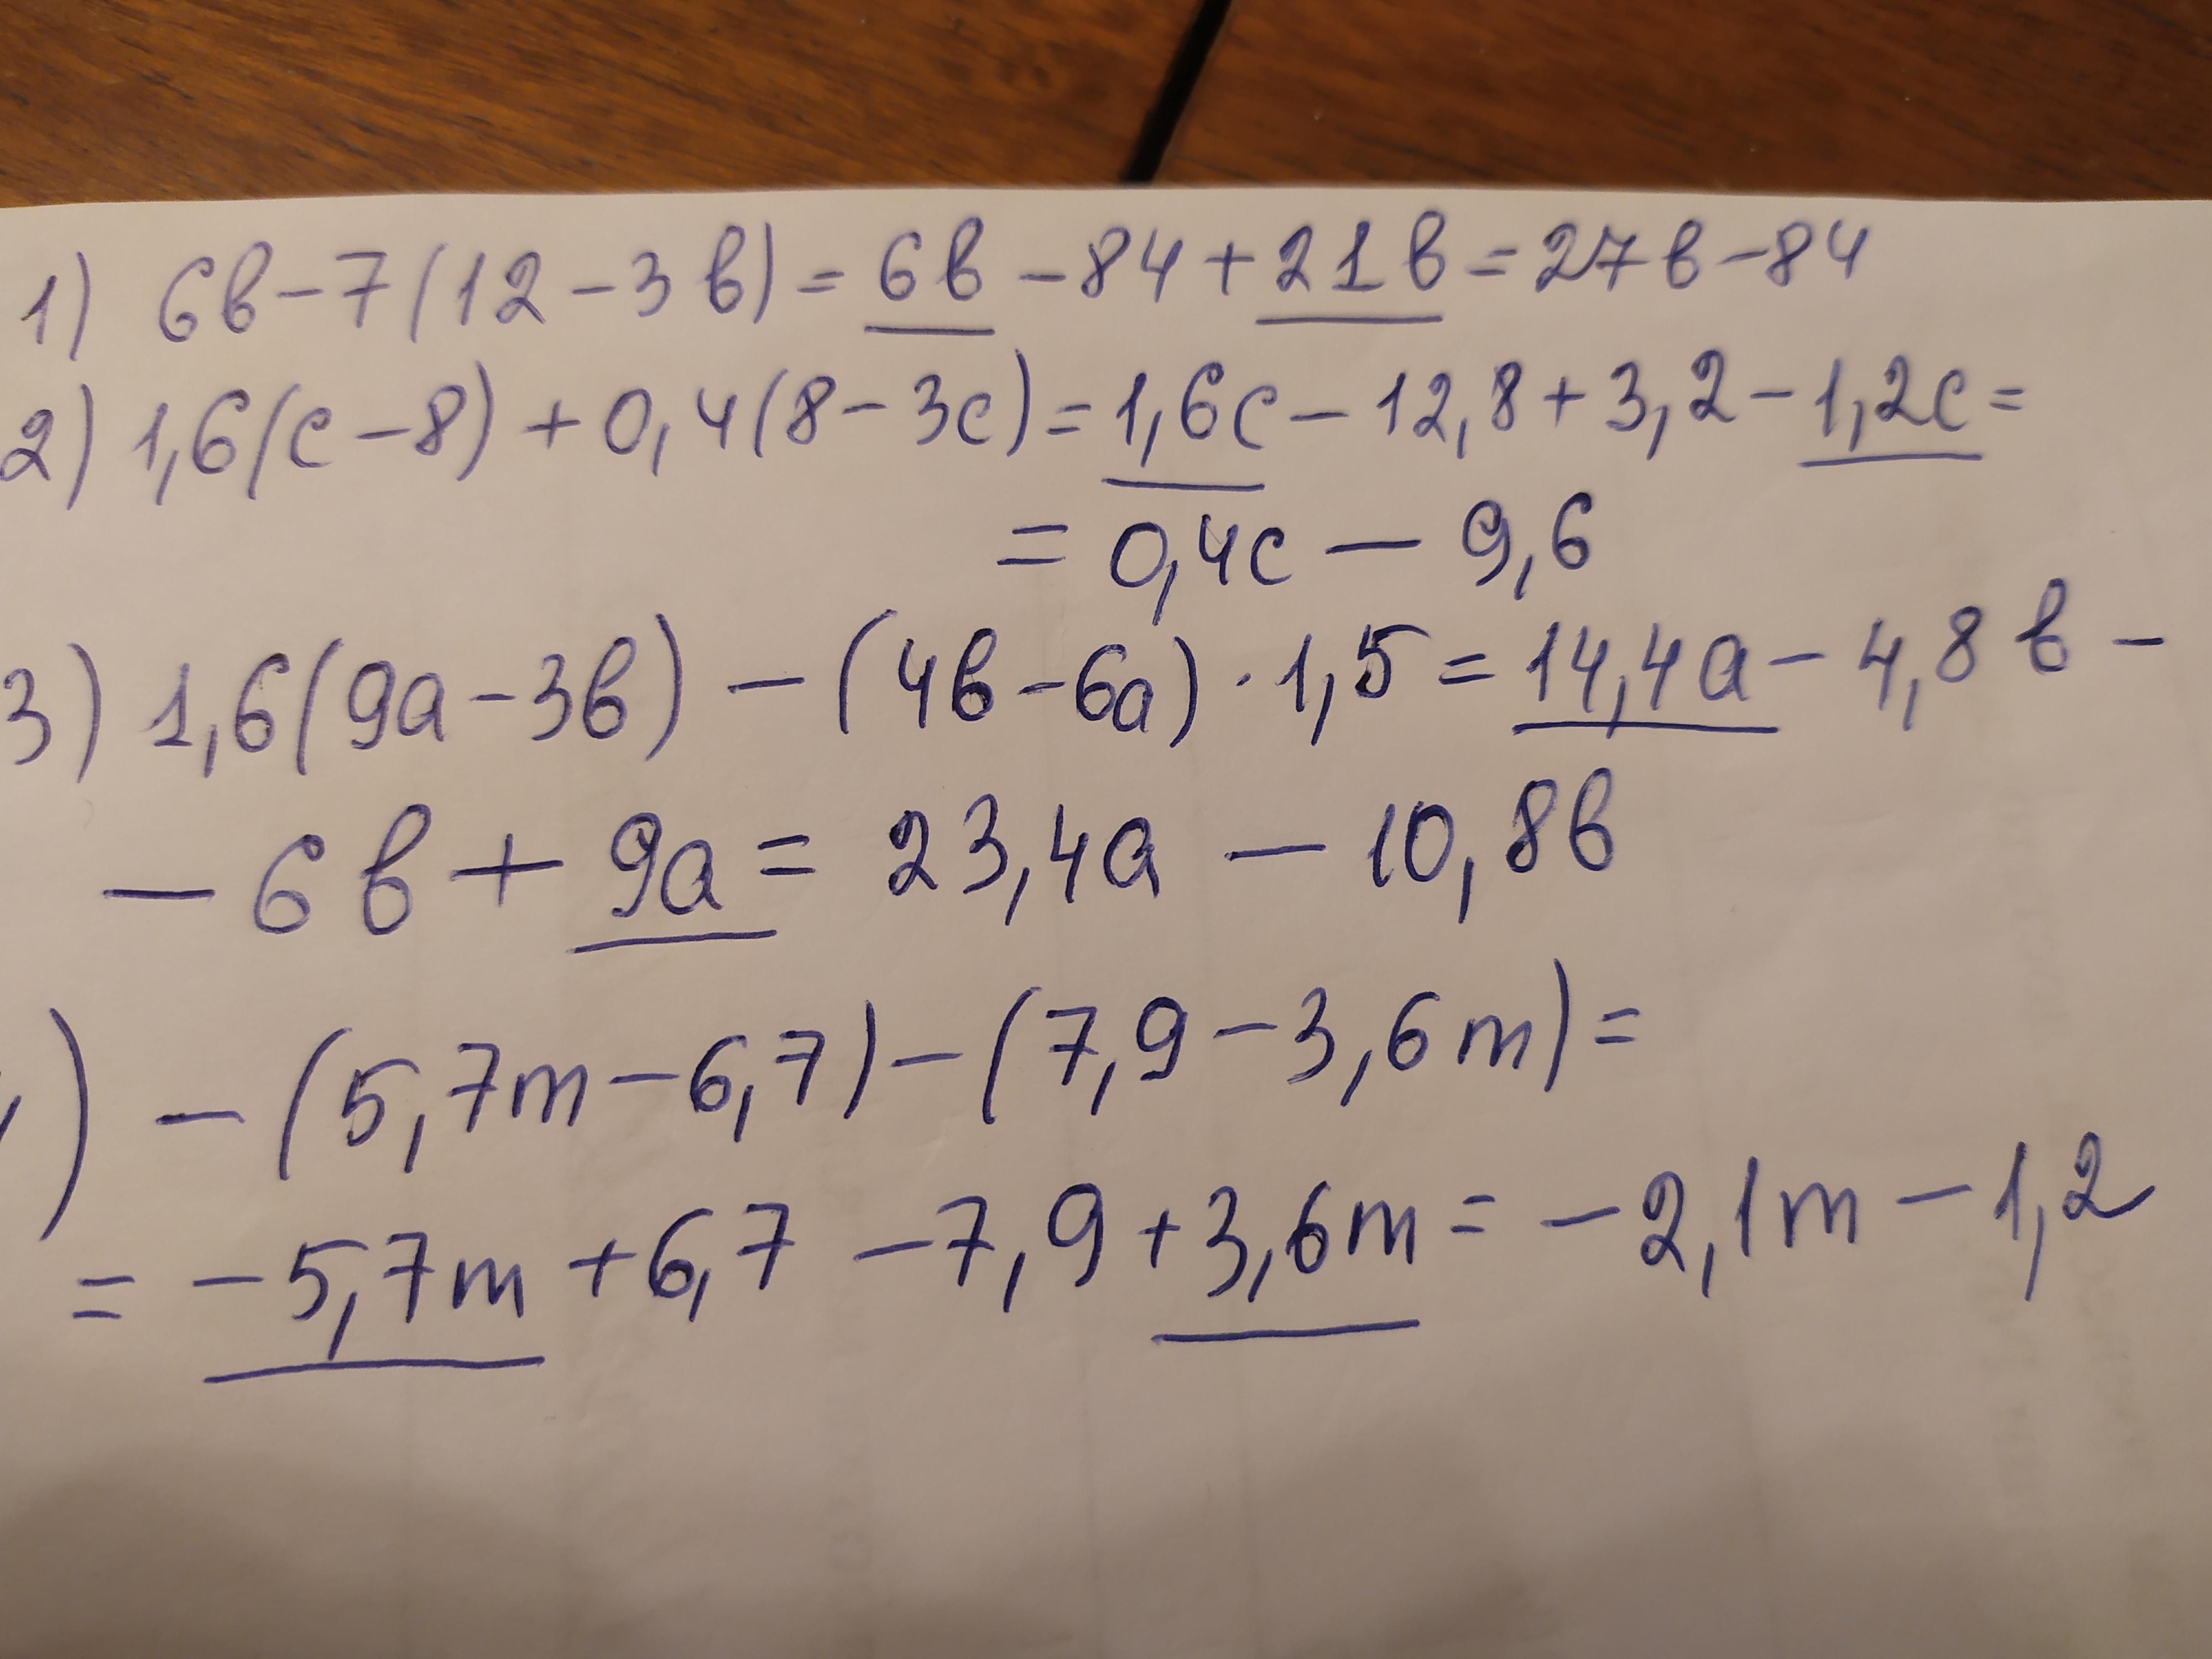 1) 6в-7(12-3в)=6в-84+21в=27в-84
2) 1,6(с-8)+0,4(8-3с)=1,6с-12,8+3,2-1,2с=
=0,4с-9,6
3) 1,6(9а-3в)-(4в-6а)·1,5=14,4а-4,8в-
-6в+9а=23,4а-10,8в
) -(5,7m-6,7)-(7,9-3,6m)=
=-5,7m+6,7-7,9+3,6m=-2,1m-1,2